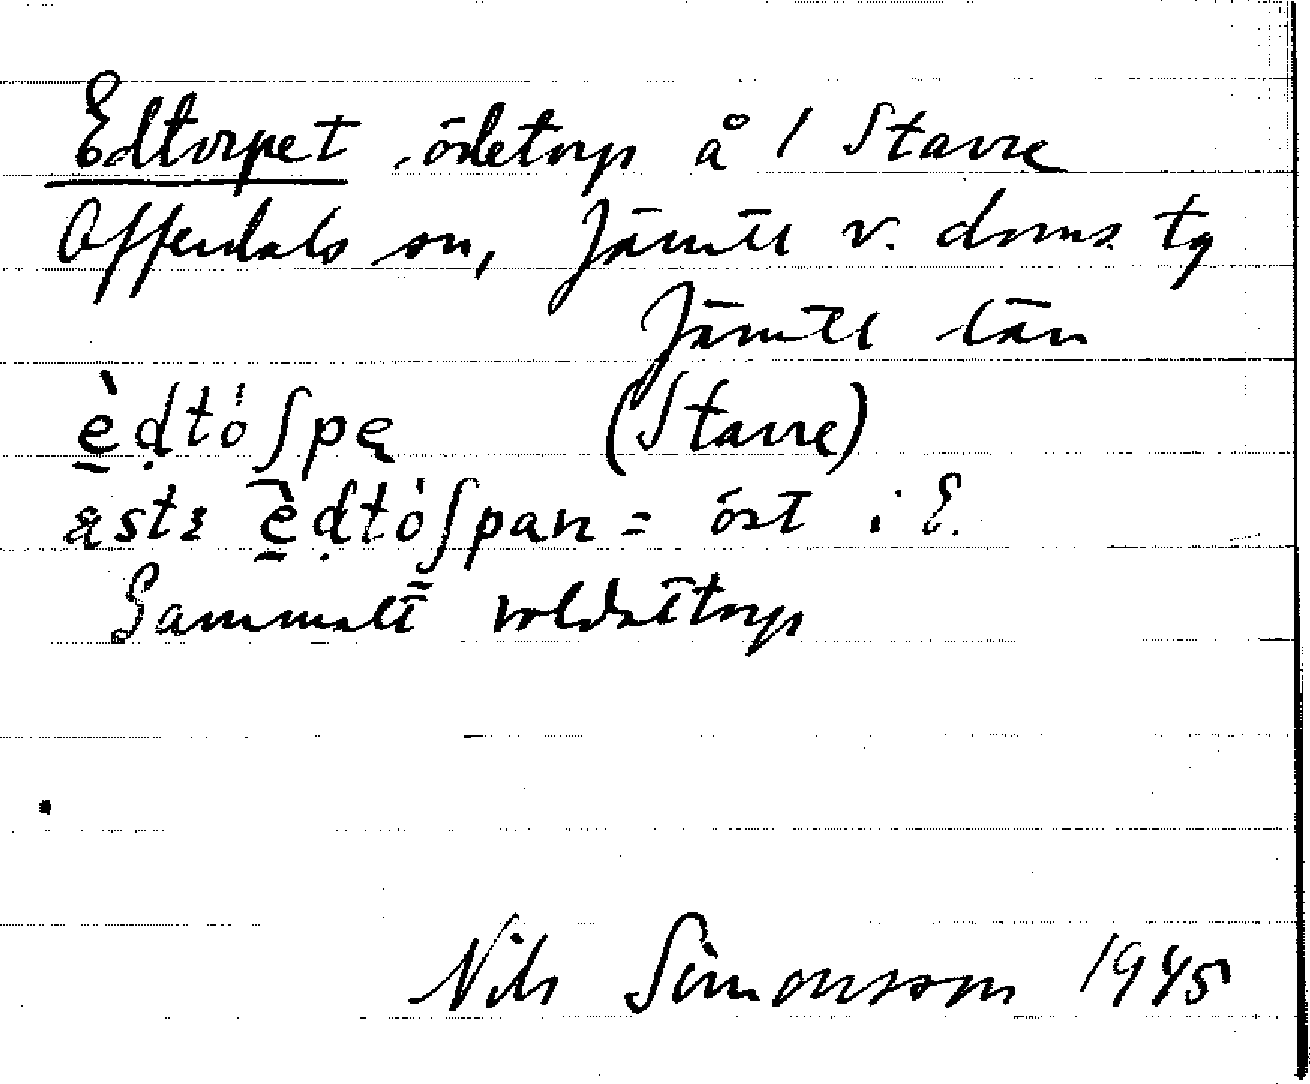 Edtorpet, ödetorp å 1 Stavre
Offerdals sn, Jämtl v. doms. tg
Jämtl län
è̱ḍtòʃpę (Stavre)
æstɜ è̱ḍtòʃpan = öst i E.
Gammalt soldattorp
Nils Simonsson 1945